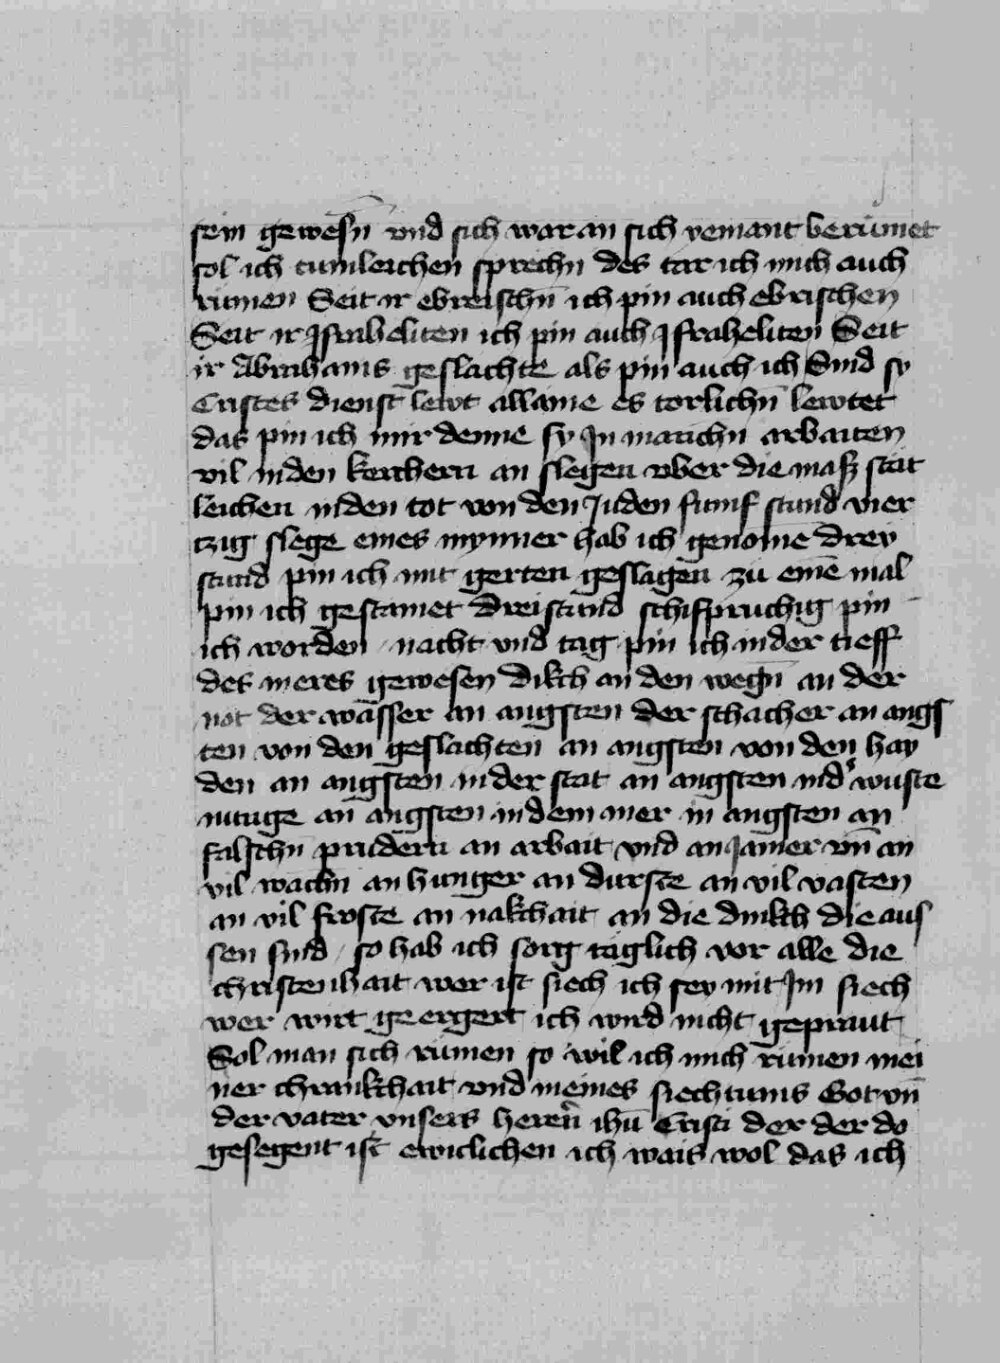 sein gewesn̄ vnd sich war an sich yemant berümet
sol ich tumleichen sprechn des tar ich mich auch
rümen Seit ir ebreischn̄ ich pin auch ebrischen
Seit ir Israheliten ich pin auch Israheliten Seit
ir Abrahams geslachte als pin auch ich Sind sy
Cristes dienst lewt allaine es torlichn̄ lewtet
das pin ich mir denne sy In manichn arbaiten
vil in den kerchern an slegen vber die mass stat
leichen in den tot von den Juden fumf stund vier
tzig slege eines mynner hab ich genomē drey
stund pin ich mit gerten geslagen zu einē mal
pin ich gestainet Dreistund schifpruchig pin
ich worden nacht vnd tag pin ich in der tieff
des meres gewesen Dikch an den wegn̄ an der
not der wässer an angsten der schacher an angs
ten von den geslachten an angsten von den hay
den an angsten in der stat an angsten in d' wuste
nunge an angsten in dem mer in angsten an
falschn prudern an arbait vnd an Jamer vn̄ an
vil wachn an hunger an durste an vil vasten
an vil froste an nakchait an die dinkch die aus
sen sind so hab ich sorg täglich vor alle die
christenhait wer ist siech ich sey mit Im siech
wer wirt geergert ich wird nicht geprant
Sol man sich rümen so wil ich mich rümen mei
ner chrankchait vnd meines siechtums Got vn̄
der vater vnsers heren̄ ihū Cristi der der do
gesegent ist ewiclichen ich wais wol das ich